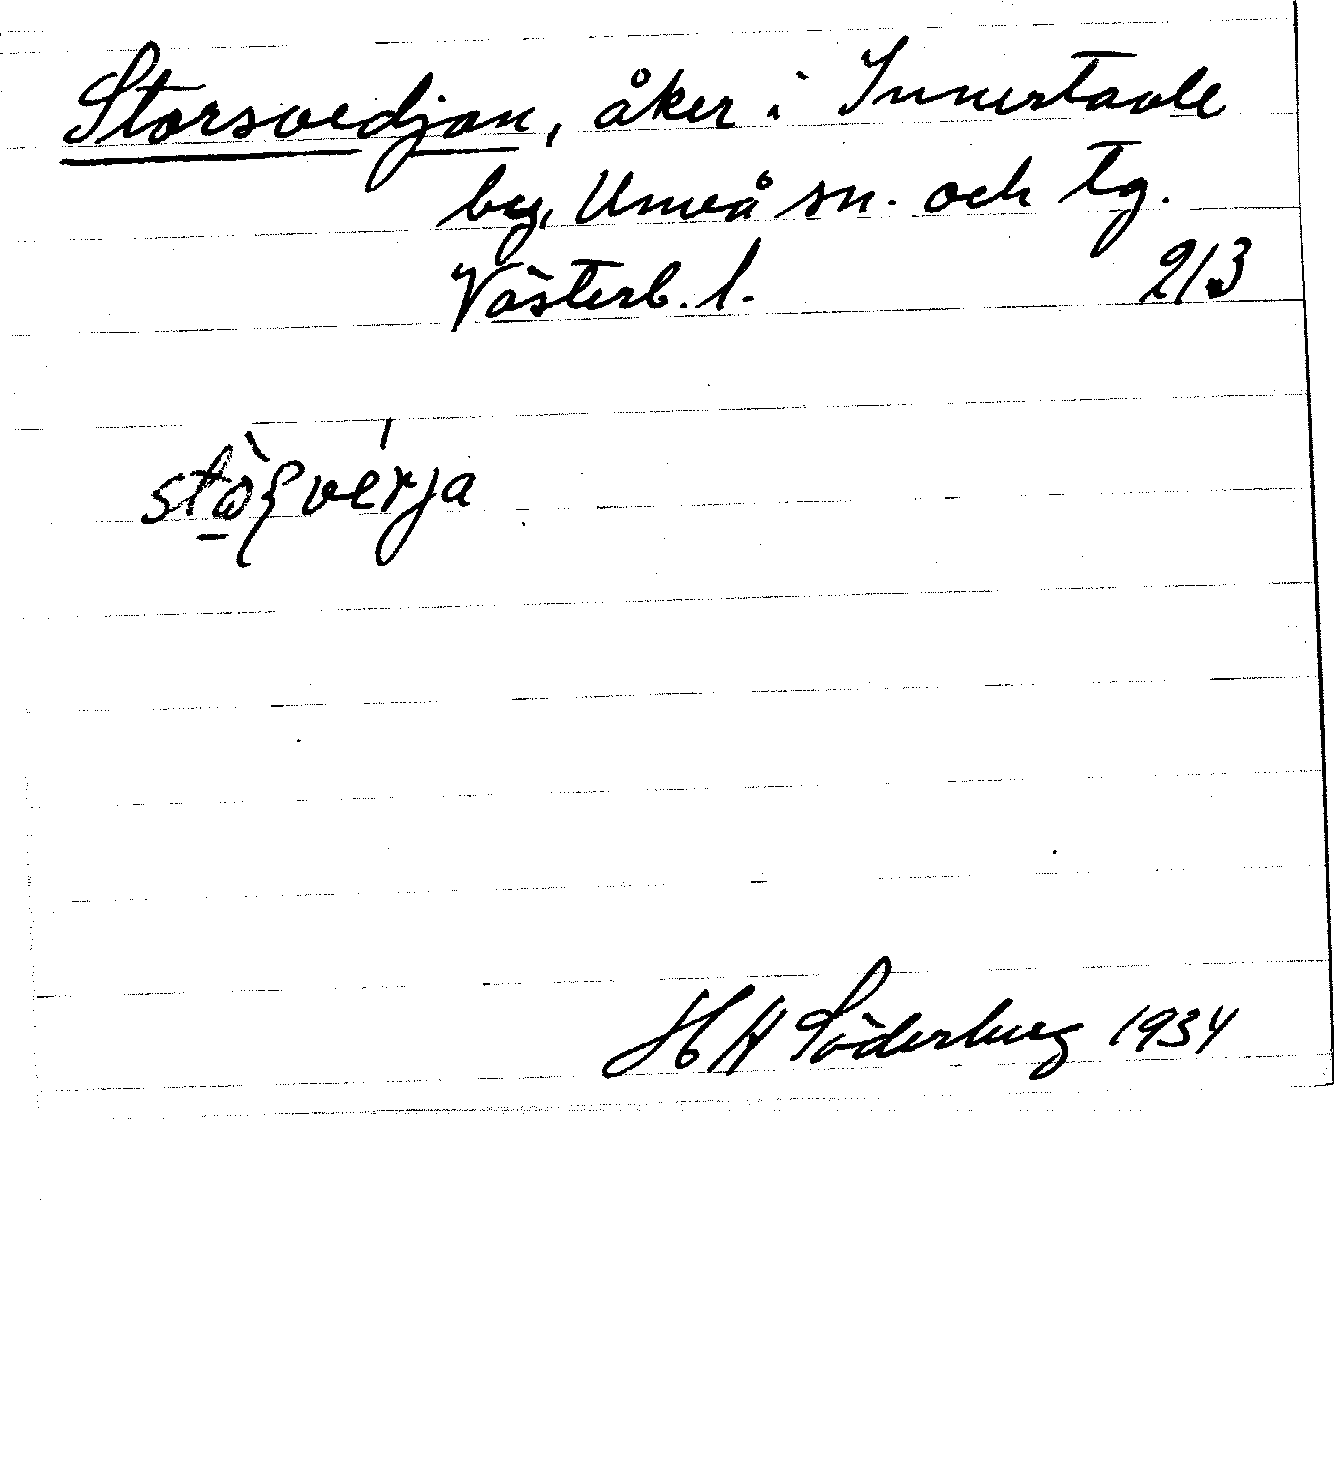 Storsvedjan, åker i Innertavle
by, Umeå sn. och tg.
Västerb. l. 2/3
H A Söderberg 1934